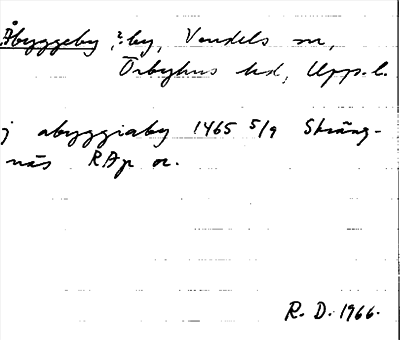 Åbyggeby, ?by, Vendels sn,
Örbyhus hd, Upps.l.
j abyggiaby 1465 5/9 Sträng-
näs RAp or.
R. D. 1966.